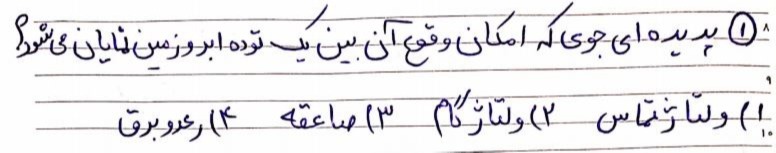 ① پدیده ای جوی که امکان وقوع آن بین یک توده ابر و زمین نمایان می شود؟
۱) ولتاژ تماس ۲) ولتاژ گام ۳) صاعقه ۴) رعد و برق